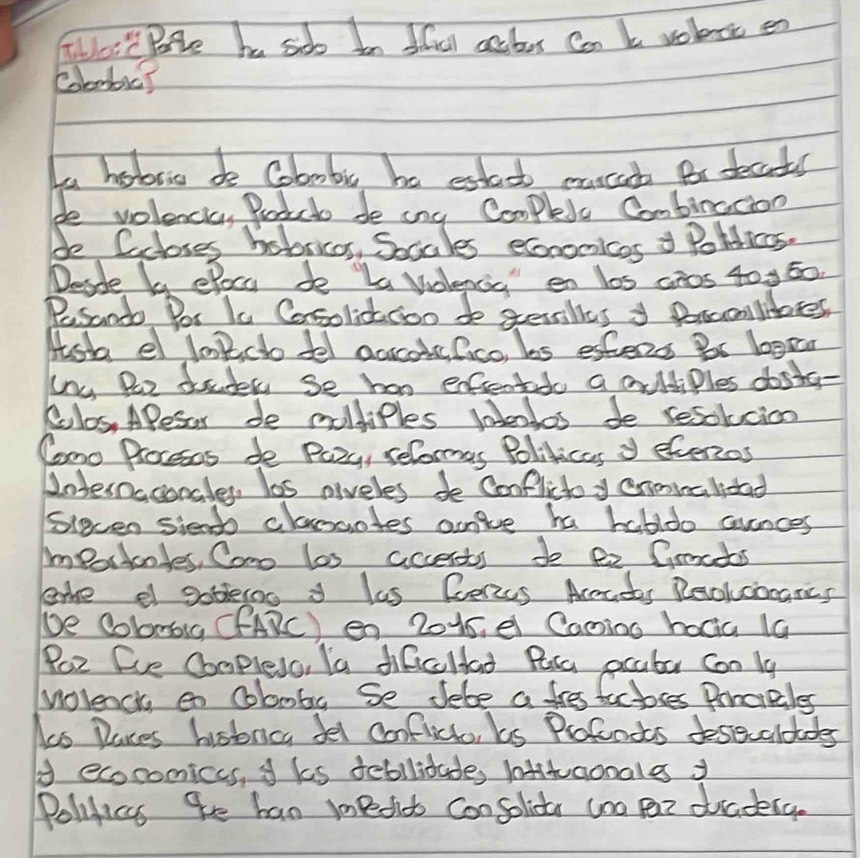 Titulo: "¿Porke ha sido tan dificil acabar Con la violencia en
Colombia?
La historia de Colombia ha estado marcada Por decadas
de violencia, Producto de una Compleja Combinacion
de factores historicos, Sociales economicos y Politicos.
Desde la ePoca de "La Violencia" en los años 40 y 50.
Pasando Por la Consolidacion de gerrillas y Paramilitares,
Hasta el Impacto del narcotrafico, los esferzos Por lograr
una Paz duradera Se han enfrentado a multiPles obsta-
Culos. APesar de multiPles Intentos de resolucion
Como Procesos de Paz, reformas Politicas y eferzos
Internacionales. los niveles de Conflicto y Criminalidad
Siguen siendo alarmantes aunque ha habido avances
imPortantes, Como los acuerdos de Paz firmados
entre el gobierno y las fuerzas Armadas Revolucionarias
De Colombia (FARC) en 2016, el Camino hacia la
Paz fue ComPlejo, la dificultad Para acabar Con la
violencia en Colombia Se debe a tres factores PrinciPales
las Raices historica del Conflicto, las Profundas desigualdades
y economicas, y las debilidades Intitucionales y
Politicas que han imPedido Consolidar una Paz duradera.